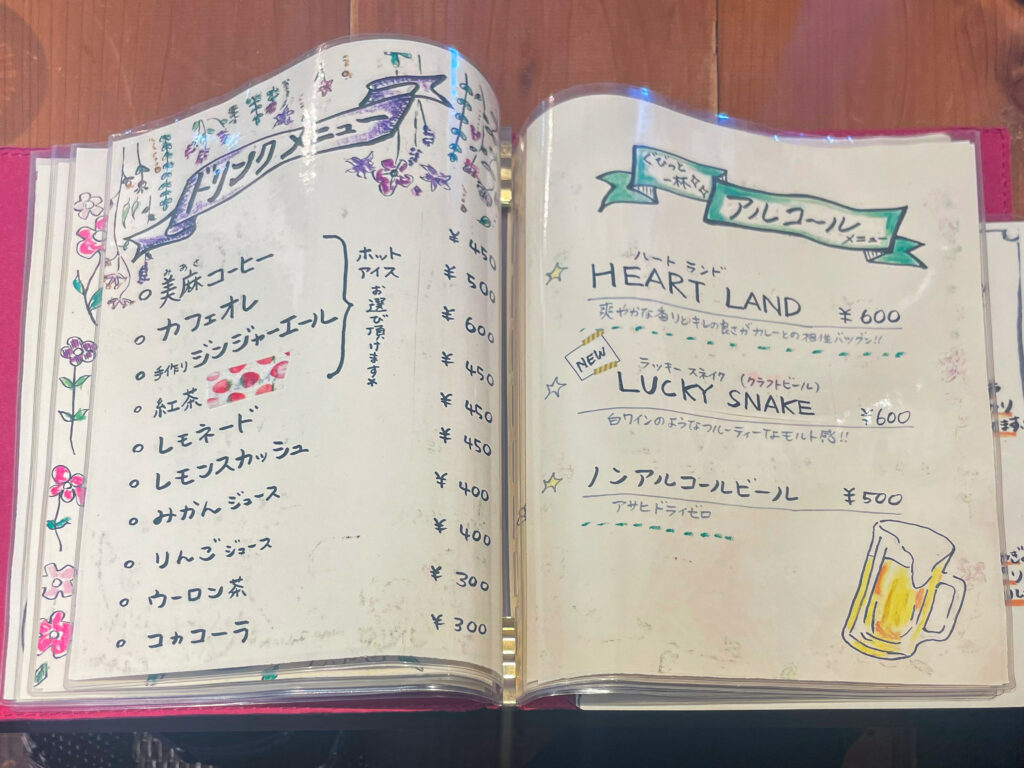 ドリンクメニュー
みあさ
美麻コーヒー ¥450
カフェオレ ¥500
手作りジンジャーエール ¥600
紅茶 ¥450
レモネード ¥450
レモンスカッシュ ¥450
みかんジュース ¥400
りんごジュース ¥400
ウーロン茶 ¥300
コカコーラ ¥300
ホット
アイス
お選び頂けます*
ぐびっと
一杯☆☆
アルコール
メニュー
ハート ランド
HEART LAND ¥600
爽やかな香りとキレの良さがカレーとの相性バツグン!!
NEW
ラッキー スネイク (クラフトビール)
LUCKY SNAKE ¥600
白ワインのようなフルーティーなモルト感!!
ノンアルコールビール ¥500
アサヒドライゼロ